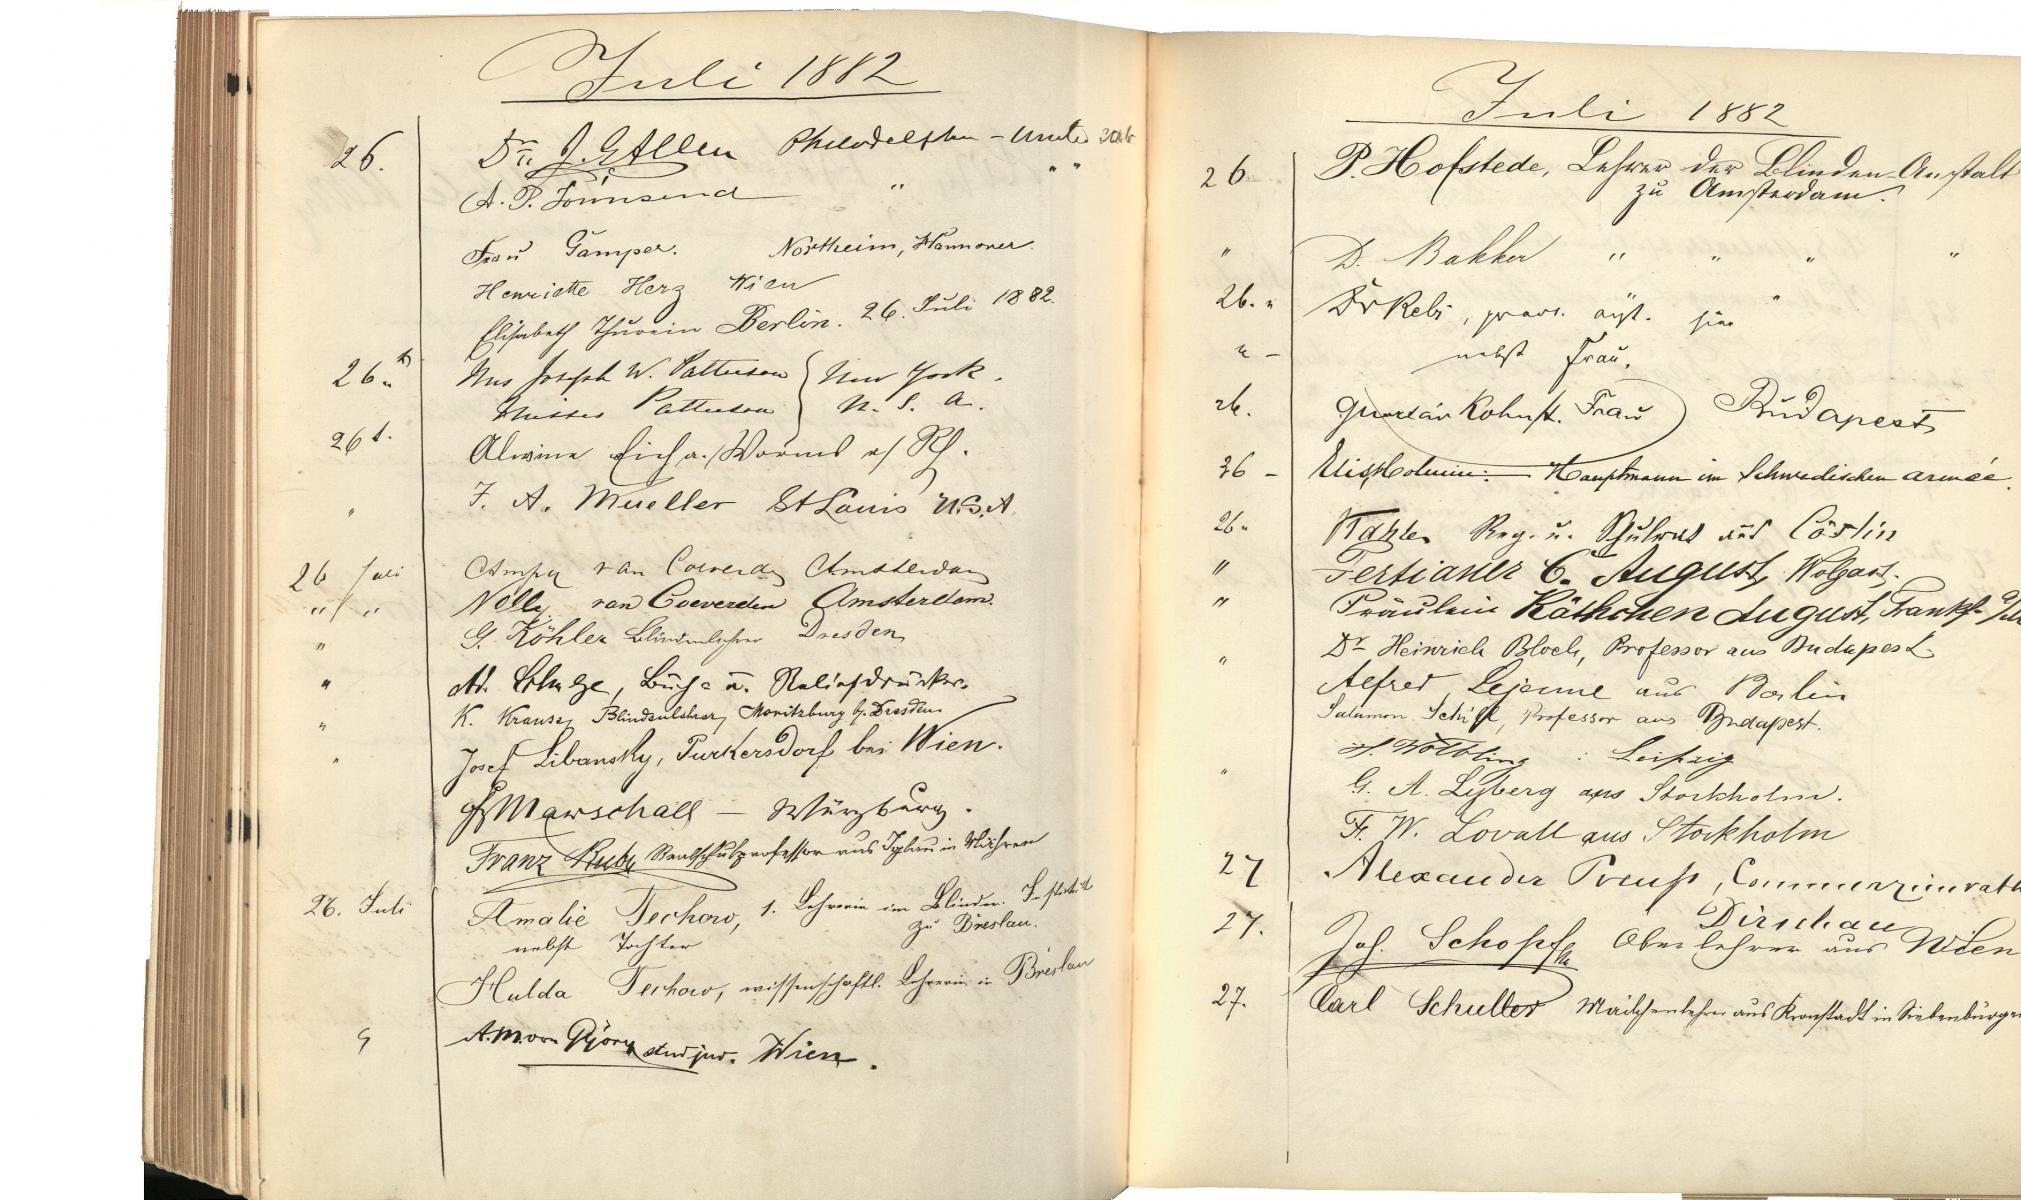 Juli 1882
26. Dr. J. G. Allen Philadelphia - United
A. P. Townsend " " "
Frau Gamper. Northeim, Hannover.
Henriette Herz Wien
Elisabeth Thurein Berlin. 26. Juli 1882.
26 Mrs Joseph W. Patterson New York.
Misses Patterson U. S. A.
26 t. Alwine Worms a/Rh.
" F. A. Mueller St Louis U.S.A.
26 Juli van Coeverden Amsterdam
" " Nelly van Coeverden Amsterdam.
" G. Köhler Blindenlehrer Dresden
" Ad. Schulze, Buch- u. Reliefdrucker.
" K. Krause, Blindenlehrer, Moritzburg b. Dresden.
" Josef Libansky, Purkersdorf bei Wien.
Marschall - Würzburg.
Franz Ruby Realschulprofessor aus Iglau in Mähren
26. Juli Amalie Techow, 1. Lehrerin im Blinden-Institut
zu Breslau.
nebst Tochter
Hulda Techow, wissenschaftl. Lehrerin in Breslau
stud jur. Wien.
Juli 1882
26 P. Hofstede, Lehrer der Blinden-Anstalt
zu Amsterdam.
" D. Bakker " " " "
26. " Dr
" - nebst Frau.
26. Kohn st. Frau Budapest
26 - Hauptmann im Schwedischen armée.
26 " Reg. u. Schulrat aus Cöslin
" Tertianer C. August, Wolgast.
" Fräulein Käthchen August, Frankf. a/M
" Dr Heinrich Bloch, Professor aus Budapest
Alfred Lejeune aus Berlin
Salamon Schill, Professor aus Budapest.
Wölbling : Leipzig
" G. A. Lyberg aus Stockholm.
Fr. W. Lovall aus Stockholm
27 Alexander Preuß, Commerzienrath
Dirschau
27. Joh. Schopf Oberlehrer aus Wien
27. Carl Schuller Mädchenlehrer aus Kronstadt in Siebenbürgen